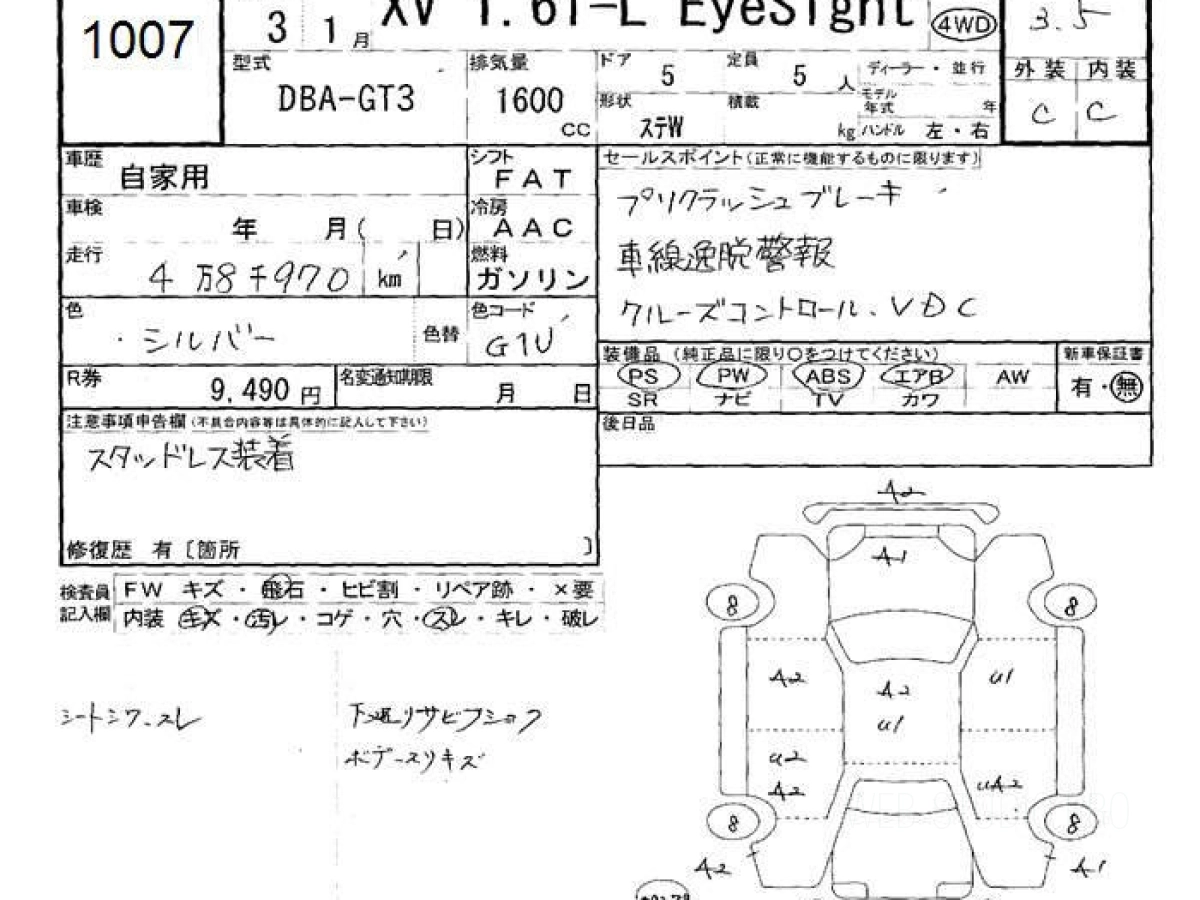 1007
3 1 月
XV 1.6i-L EyeSight
4WD
3.5
型式
DBA-GT3
排気量
1600
cc
ドア 5
定員 5 人
ディーラー・並行
形状 ステW
積載 kg
モデル年式 年
ハンドル 左・右
外装 内装
C C
車歴 自家用
シフト FAT
車検 年 月( 日)
冷房 AAC
走行 4万8千970 km
燃料 ガソリン
色 シルバー
色替
色コード G1U
R券 9,490 円
名変通知期限 月 日
セールスポイント(正常に機能するものに限ります)
プリクラッシュブレーキ
車線逸脱警報
クルーズコントロール、VDC
装備品 (純正品に限り○をつけてください)
PS PW ABS エアB AW
SR ナビ TV カワ
新車保証書
有・無
後日品
注意事項申告欄(不具合内容等は具体的に記入して下さい)
スタッドレス装着
修復歴 有〔箇所 〕
検査員記入欄
FW キズ・飛石・ヒビ割・リペア跡・×要
内装 キズ・汚レ・コゲ・穴・スレ・キレ・破レ
シートシワ、スレ
下廻リサビフショク
ボデースリキズ
A2
A1
8 8
A2 A2 U1
U1
U2
A2 UA2
8 8
A2 A1